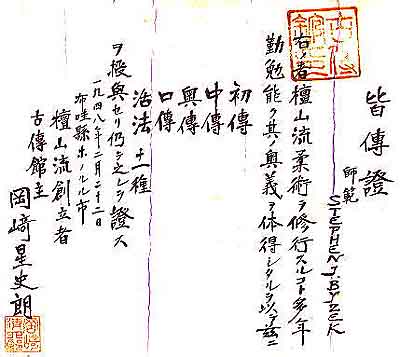 皆傳證
師範 STEPHEN J. BYZEK
右ノ者檀山流柔術ヲ修行スルコト多年
勤勉能ク其ノ奥義ヲ体得シタルヲ以テ茲ニ
初傳
中傳
奥傳
口傳
活法十一種
ヲ授與セリ仍テ之レヲ證ス
一九四八年二月二十二日
布哇縣ホノルル市
檀山流創立者
古傳館主
岡﨑星史朗